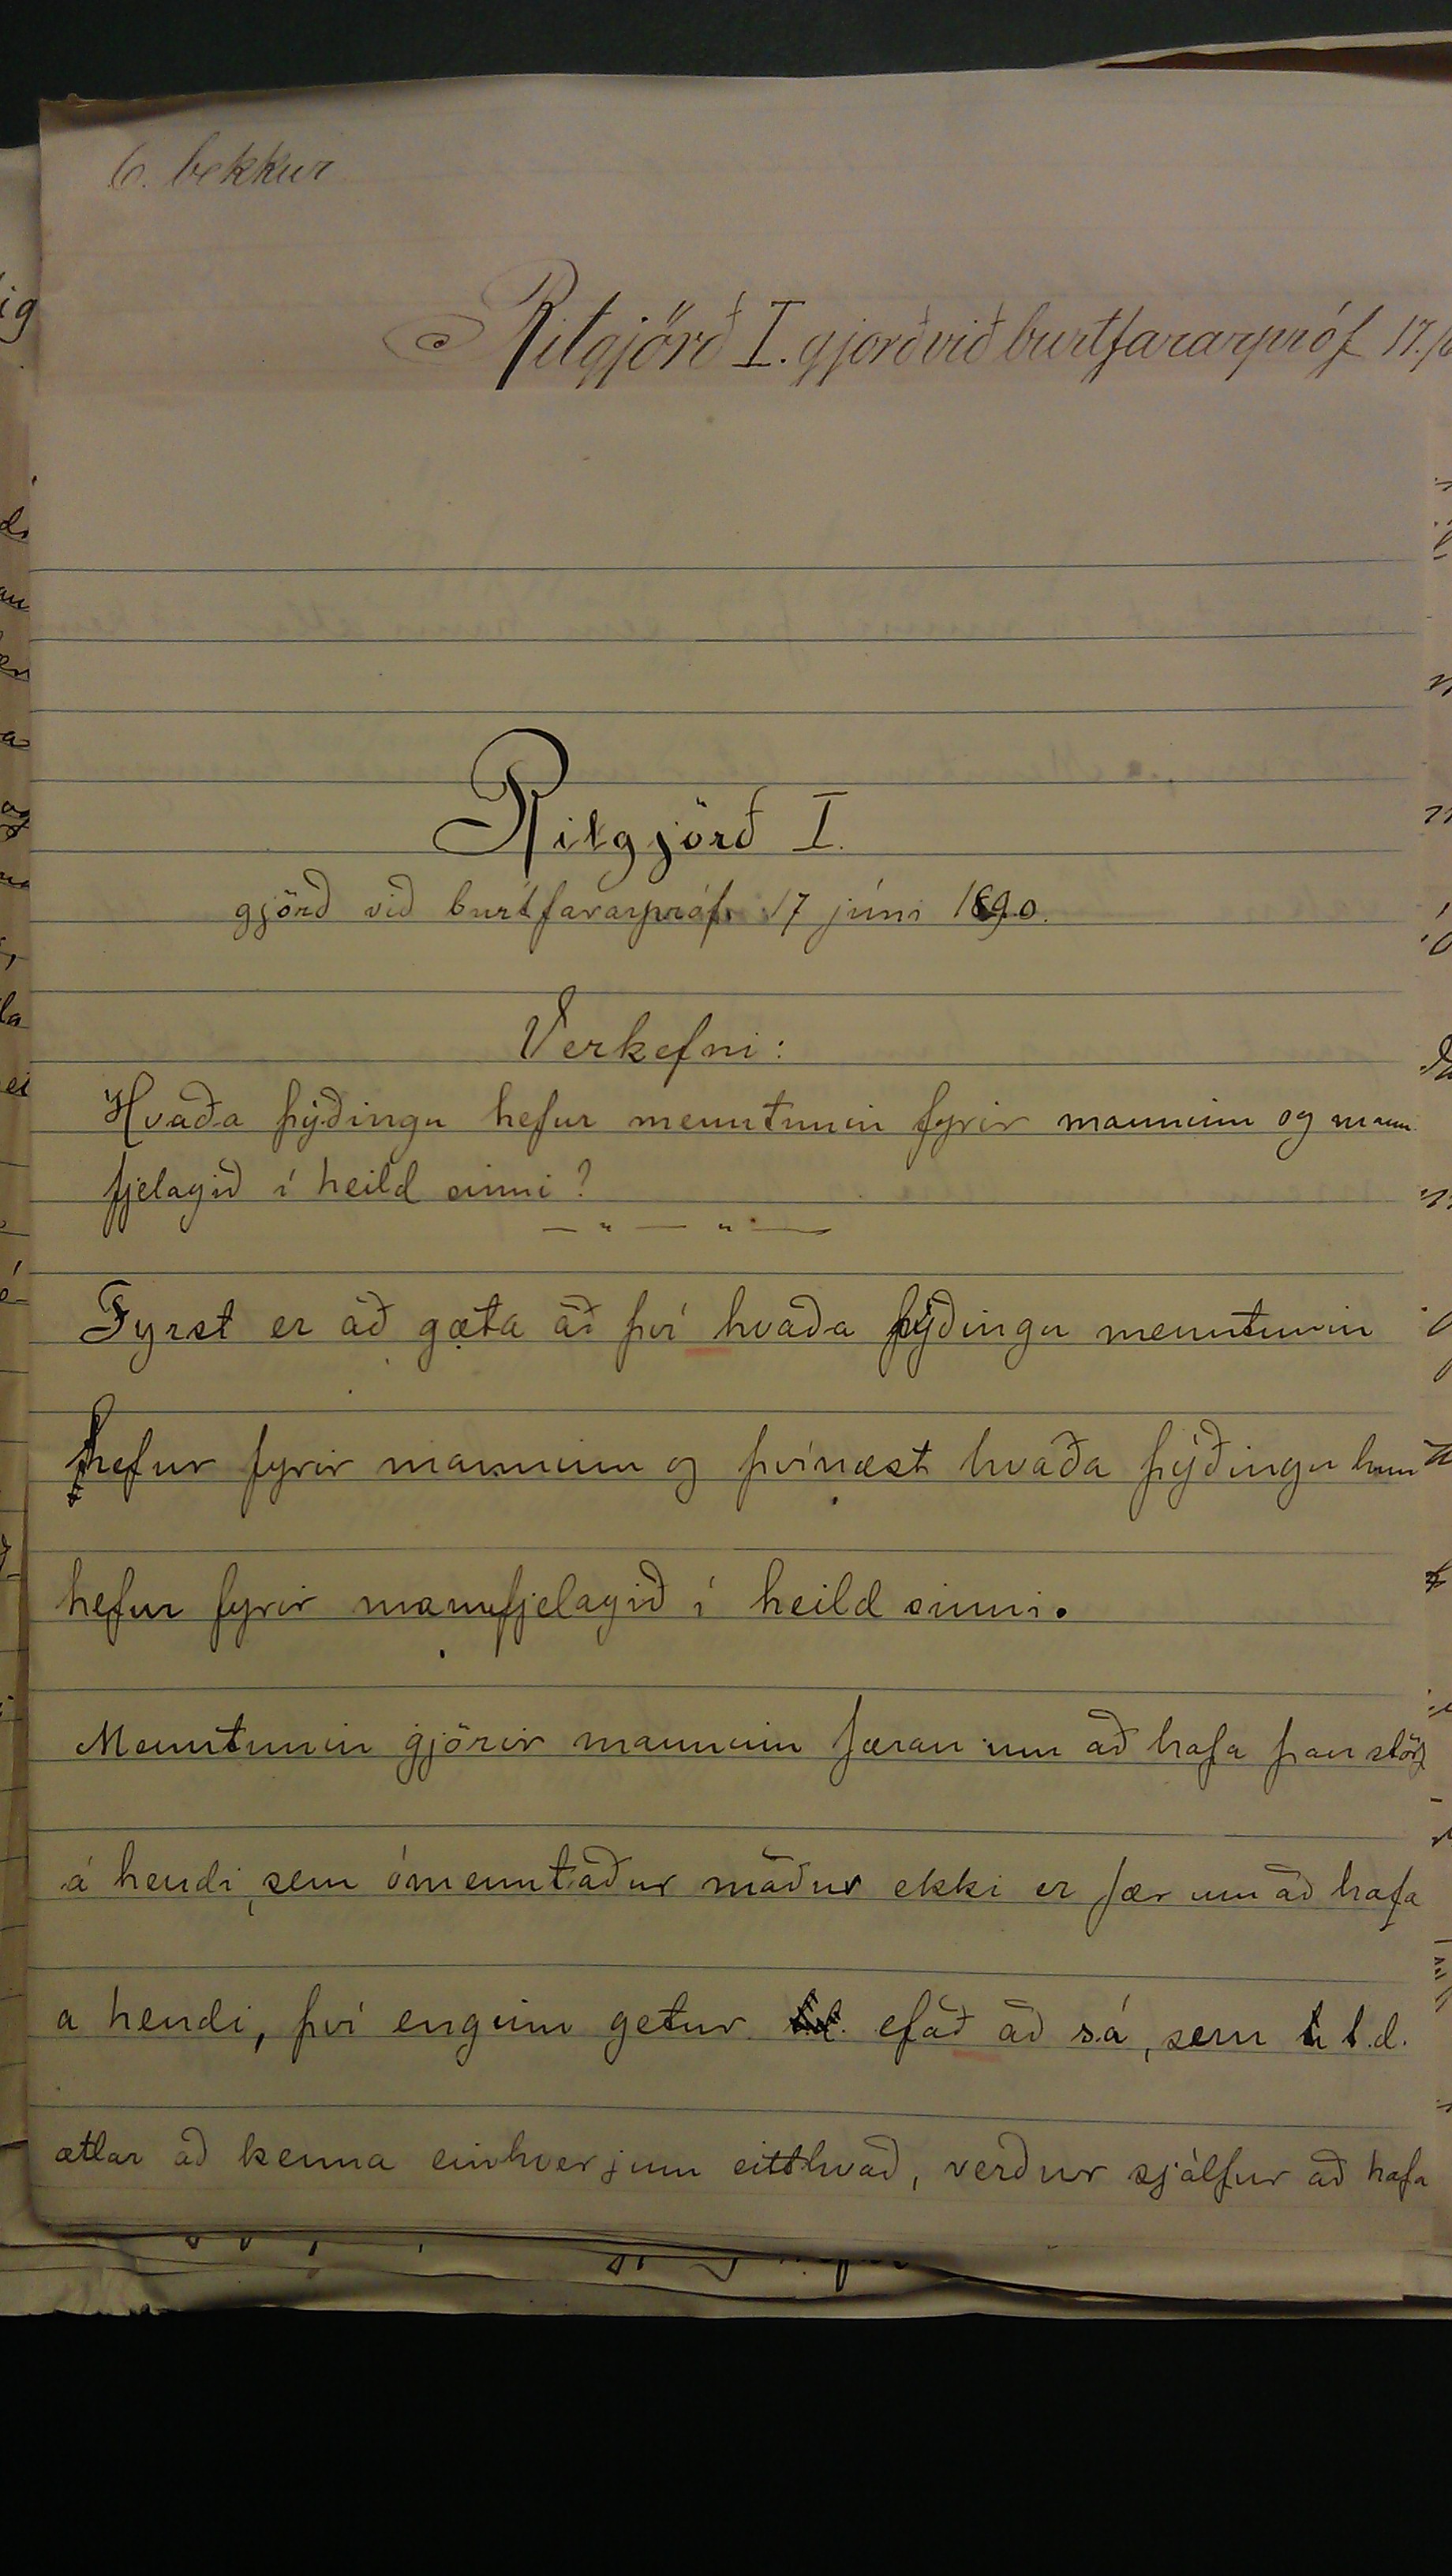 6. bekkur
Ritgjörð I. gjörð við burtfararpróf 17.
Ritgjörð I.
gjörð við burtfararpróf 17 júni 1890.
Verkefni:
Hvaða þýðingu hefur menntunin fyrir manninn og mann
fjelagið í heild sinni?
Fyrst er að gæta að því hvaða þýðingu menntunin
hefur fyrir manninn og þvínæst hvaða þýðingu hun
hefur fyrir mannfjelagið í heild sinni.
Menntunin gjörir manninn færan um að hafa þau störf
á hendi, sem ómenntaður maður ekki er fær um að hafa
a hendi, því enginn getur efað að sá, sem t.d.
ætlar að kenna einhverjum eitthvað, verður sjálfur að hafa